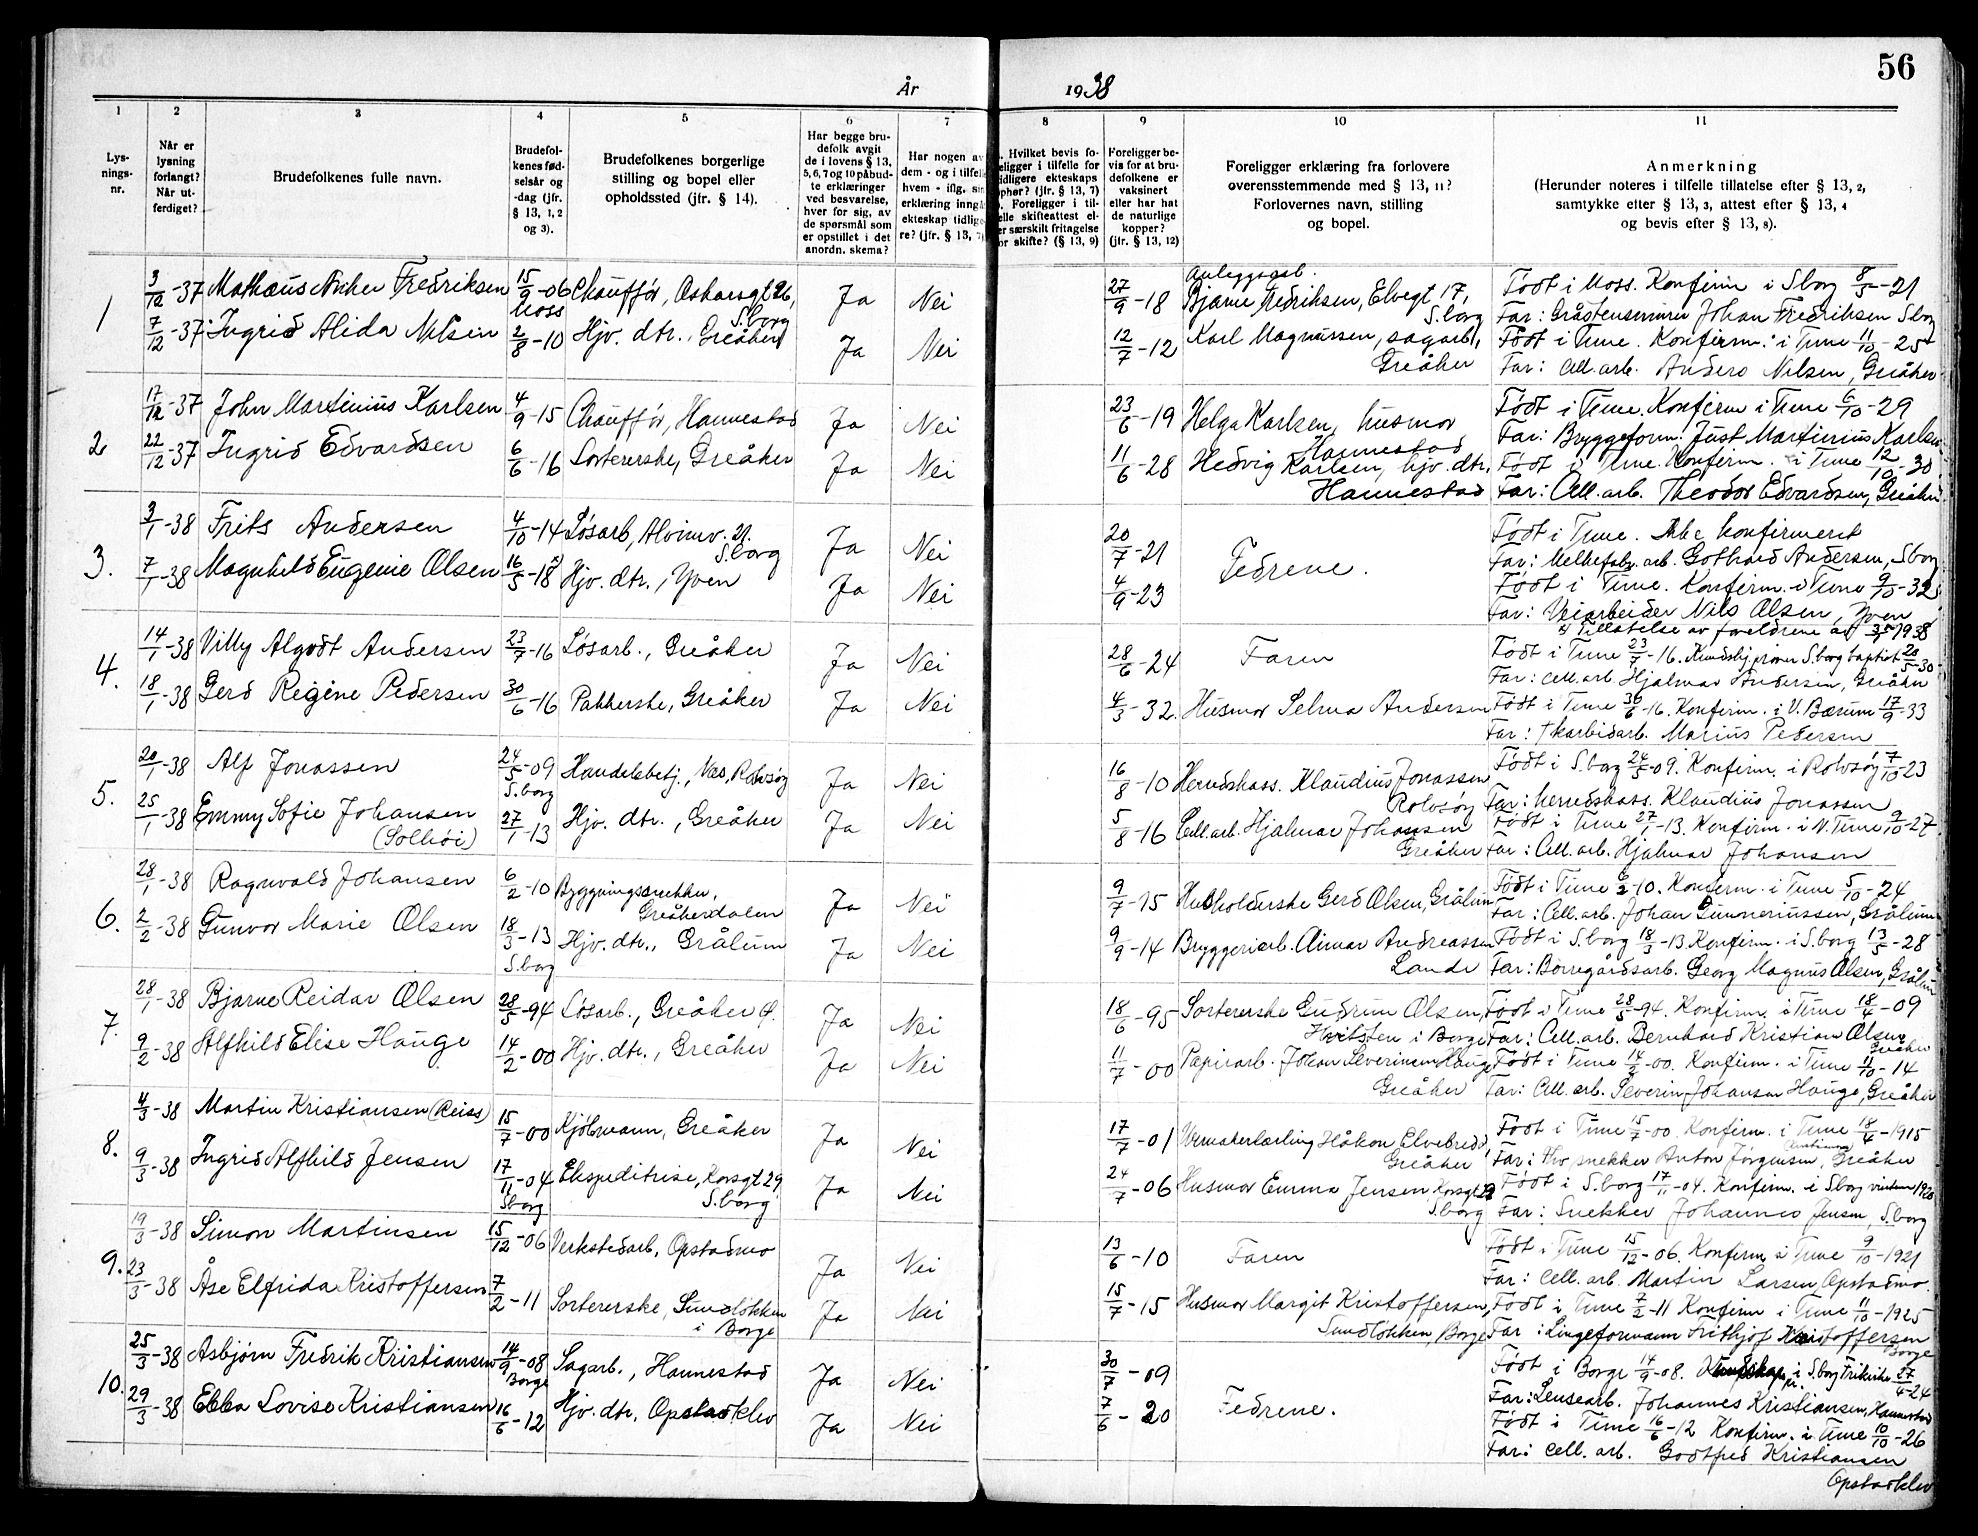 56
År 1938
1 2 3 4 5 6 7 8 9 10 11
Lys-
nings-
nr.
Når er
lysning
forlangt?
Når ut-
ferdiget?
Brudefolkenes fulle navn.
Brudefol-
kenes fød-
selsår og
-dag (jfr.
§ 13, 1, 2
og 3).
Brudefolkenes borgerlige
stilling og bopel eller
opholdssted (jfr. § 14).
Har begge bru-
defolk avgit
de i lovens § 13,
5, 6, 7 og 10 påbud-
te erklæringer
ved besvarelse,
hver for sig, av
de spørsmål som
er opstillet i det
anordn. skema?
Har nogen av
dem - og i tilfelle
hvem - iflg. sin
erklæring inngå
ekteskap tidlige
re? (jfr. § 13, 7)
Hvilket bevis fo-
eligger i tilfelle for
idligere ekteskaps
ophør? (jfr. § 13, 7)
Foreligger i til-
elle skifteattest el-
er særskilt fritagelse
or skifte? (§ 13, 9)
Foreligger be-
vis for at bru-
defolkene er
vaksinert
eller har hat
de naturlige
kopper?
(jfr. § 13, 12)
Foreligger erklæring fra forlovere
overensstemmende med § 13, 11?
Forlovernes navn, stilling
og bopel.
Anmerkning
(Herunder noteres i tilfelle tillatelse efter § 13, 2,
samtykke efter § 13, 3, attest efter § 13, 4
og bevis efter § 13, 8).
1 3/12-37 Fredriksen 15/9-06 Moss Chauffør, Oskarsgt 26, S.borg Ja Nei 27/9-18 Anleggsarb. Bjarne Fredriksen, Elvegt 17, S.borg
Født i Moss. Konfirm i Sborg 8/5-21
Far: Johan Fredriksen Sborg
7/12-37 Ingrid Alida Nilsen 2/8-10 Hjv. dtr., Greåker Ja Nei 12/7-12 Karl Magnussen, sagarb., Greåker
Født i Tune. Konfirm. i Tune 11/10-25
Far: Cell. arb. Anders Nilsen, Greåker
2 17/12-37 John Martinius Karlsen 4/9-15 Chauffør, Hannestad Ja Nei 23/6-19 Helga Karlsen, husmor Hannestad
Født i Tune. Konfirm i Tune 6/10-29
Far: Bryggeform. Just Martinius Karlsen
22/12-37 Ingrid Edvardsen 6/6-16 Sortererske, Greåker Ja Nei 11/6-28 Hedvig Karlsen, hjv. dtr., Hannestad
Født i Tune. Konfirm. i Tune 12/10-30
Far: Cell. arb. Theodor Edvardsen, Greåker
3. 3/1-38 Frits Andersen 4/10-14 Løsarb, Alvimv. 21. S.borg Ja Nei 20/7-21 Fedrene.
Født i Tune. Ikke konfirmeret
Far: Melkefabr. arb. Gothard Andersen, Sborg
7/1-38 Magnhild Eugenie Olsen 16/5-18 Hjv. dtr., Yven Ja Nei 4/9-23
Født i Tune. Konfirm. i Tune 9/10-32
Far: Veiarbeider Nils Olsen, Yven
x) Tillatelse av foreldrene av 3/1-1938
4. 14/1-38 Villy Algodt Andersen 23/7-16 Løsarb., Greåker Ja Nei 28/6-24 Faren
Født i Tune 23/7-16. Kundskj. prøver S.borg baptist 28/5-30
Far: cell. arb. Hjalmar Andersen, Greåker
18/1-38 Gerd Regine Pedersen 30/6-16 Pakkerske, Greåker Ja Nei 4/3-32. Husmor Selma Andersen
Født i Tune 30/6-16. Konfirm. i V. Bærum 17/9-33
Far: † karbidarb. Marius Pedersen
5. 20/1-38 Alf Jonassen 24/5-09 S.borg Handelsbetj., Nes, Rolvsøy Ja Nei 16/8-10 Herredskass. Klaudius Jonassen Rolvsøy
Født i S.borg 24/5-09. Konfirm. i Rolvsøy 7/10-23
Far: herredskass. Klaudius Jonassen
25/1-38 Emmy Sofie Johansen (Solhøi) 27/1-13 Hjv. dtr., Greåker Ja Nei 5/8-16 Cell. arb. Hjalmar Johansen Greåker
Født i Tune 27/1-13. Konfirm. i N. Tune 9/10-27
Far: Cell. arb. Hjalmar Johansen
6. 28/1-38 Ragnvald Johansen 6/2-10 Byggningssnekker, Greåkerdalen Ja Nei 9/7-15 Husholderske Gerd Olsen, Grålum
Født i Tune 6/2-10. Konfirm. i Tune 5/10-24
Far: Cell. arb. Johan Gunneriussen, Grålum
2/2-38 Gunvor Marie Olsen 18/3-13 S.borg Hjv. dtr., Grålum Ja Nei 9/9-14 Bryggeriarb. Einar Andreassen Lande
Født i S.borg 18/3-13. Konfirm. i S.borg 13/5-28
Far: Borregårdsarb. Georg Magnus Olsen, Grålum
7. 28/1-38 Bjarne Reidar Olsen 28/5-94 Løsarb., Greåker Ja Nei 18/6-95 Sortererske Gudrun Olsen, Hvitsten i Borge
Født i Tune 28/5-94. Konfirm. i Tune 18/4-09
Far: Cell. arb. Bernhard Kristian Olsen Greåker
9/2-38 Alfhild Elise Hauge 14/2-00 Hjv. dtr., Greåker Ja Nei 11/7-00 Papirarb. Johan Severinsen Hauge Greåker
Født i Tune 14/2-00. Konfirm. i Tune 11/10-14
Far: Cell. arb. Severin Johansen Hauge, Greåker
8. 4/3-38 Martin Kristiansen (Reiss) 15/7-00 Kjøbmann, Greåker Ja Nei 17/7-01 Urmakerlærling Håkon Elvebredd, Greåker
Født i Tune 15/7-00. Konfirm. i Tune 18/4-1915
Far: Hv snekker Anton Jørgensen, Greåker
9/3-38 Ingrid Alfhild Jensen 17/11-04 Sborg Ekspeditrise, Korsgt 29 S.borg Ja Nei 24/7-06 Husmor Emma Jensen Korsgt 29 S.borg
Født i S.borg 17/11-04. Konfirm. i S.borg vinteren 1920
Far: Snekker Johannes Jensen, S.borg
9. 19/3-38 Simon Martinsen 15/12-06 Verkstedarb, Opstadmo Ja Nei 13/6-10 Faren
Født i Tune 15/12-06. Konfirm i Tune 9/10-1921
Far: Cell. arb. Martin Larsen, Opstadmo.
23/3-38 Åse Elfrida Kristoffersen 7/2-11 Sortererske, Sundløkken i Borge Ja Nei 15/7-15 Husmor Margit Kristoffersen, Sundløkken, Borge
Født i Tune 7/2-11 Konfirm i Tune 11/10-1925
Far: Lingeformann Frithjof Kristoffersen Borge
10. 25/3-38 Asbjørn Fredrik Kristiansen 14/9-08 Borge Sagarb., Hannestad Ja Nei 30/7-09 Fedrene.
Født i Borge 14/9-08. i S.borg Frikirke 27/4-24
Far: Lensearb. Johannes Kristiansen, Hannestad
29/3-38 Ebba Lovise Kristiansen 16/6-12 Hjv. dtr, Opstadklev Ja Nei 7/6-20
Født i Tune 16/6-12 Konfirm. i Tune 10/10-26
Far: Cell. arb. Godtfred Kristiansen
Opstadklev